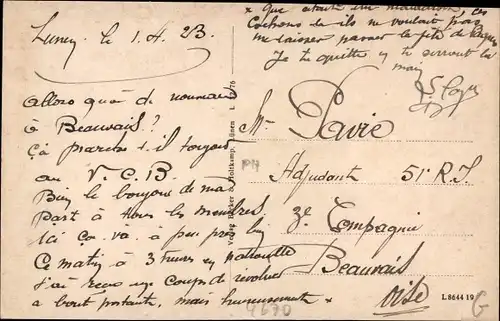 Lunen le 1.4.23.
Allons quoi de nouveau
à Beauvais?
Ça marche t-il toujours
au V.C.B.
Bien le bonjour de ma
part à tous les membres.
Ici ça va à peu près bien
Ce matin à 3 heures en patrouille
j'ai reçu un coup de revolver
a bout portant, mais heureusement x
x que était un maladroit, ces
cochons de ils ne voulait pas
me laisser passer la fête de Pâques
Je te quitte en te serrant la
main
Verlag Becker & Holtkamp, Lünen L.
Mr Pavie
Adjudant 51e R.I.
3e Compagnie
Beauvais
Oise
PH
L 8644 19
4670